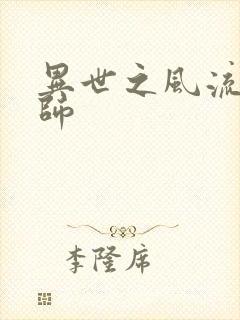 異世之風流
師
李隆席